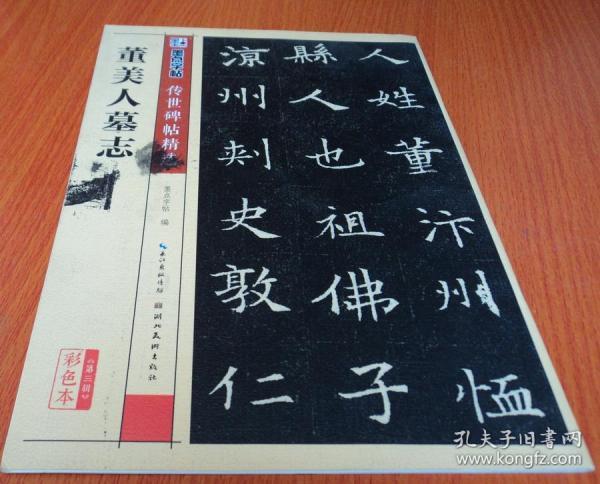 董美人墓志
墨点字帖
传世碑帖精选
墨点字帖 编
长江出版传媒
湖北美术出版社
《第三辑》
彩色本
人姓董汴州恤
縣人也祖佛子
涼州刺史敦仁
孔夫子旧书网
www.kongfz.com